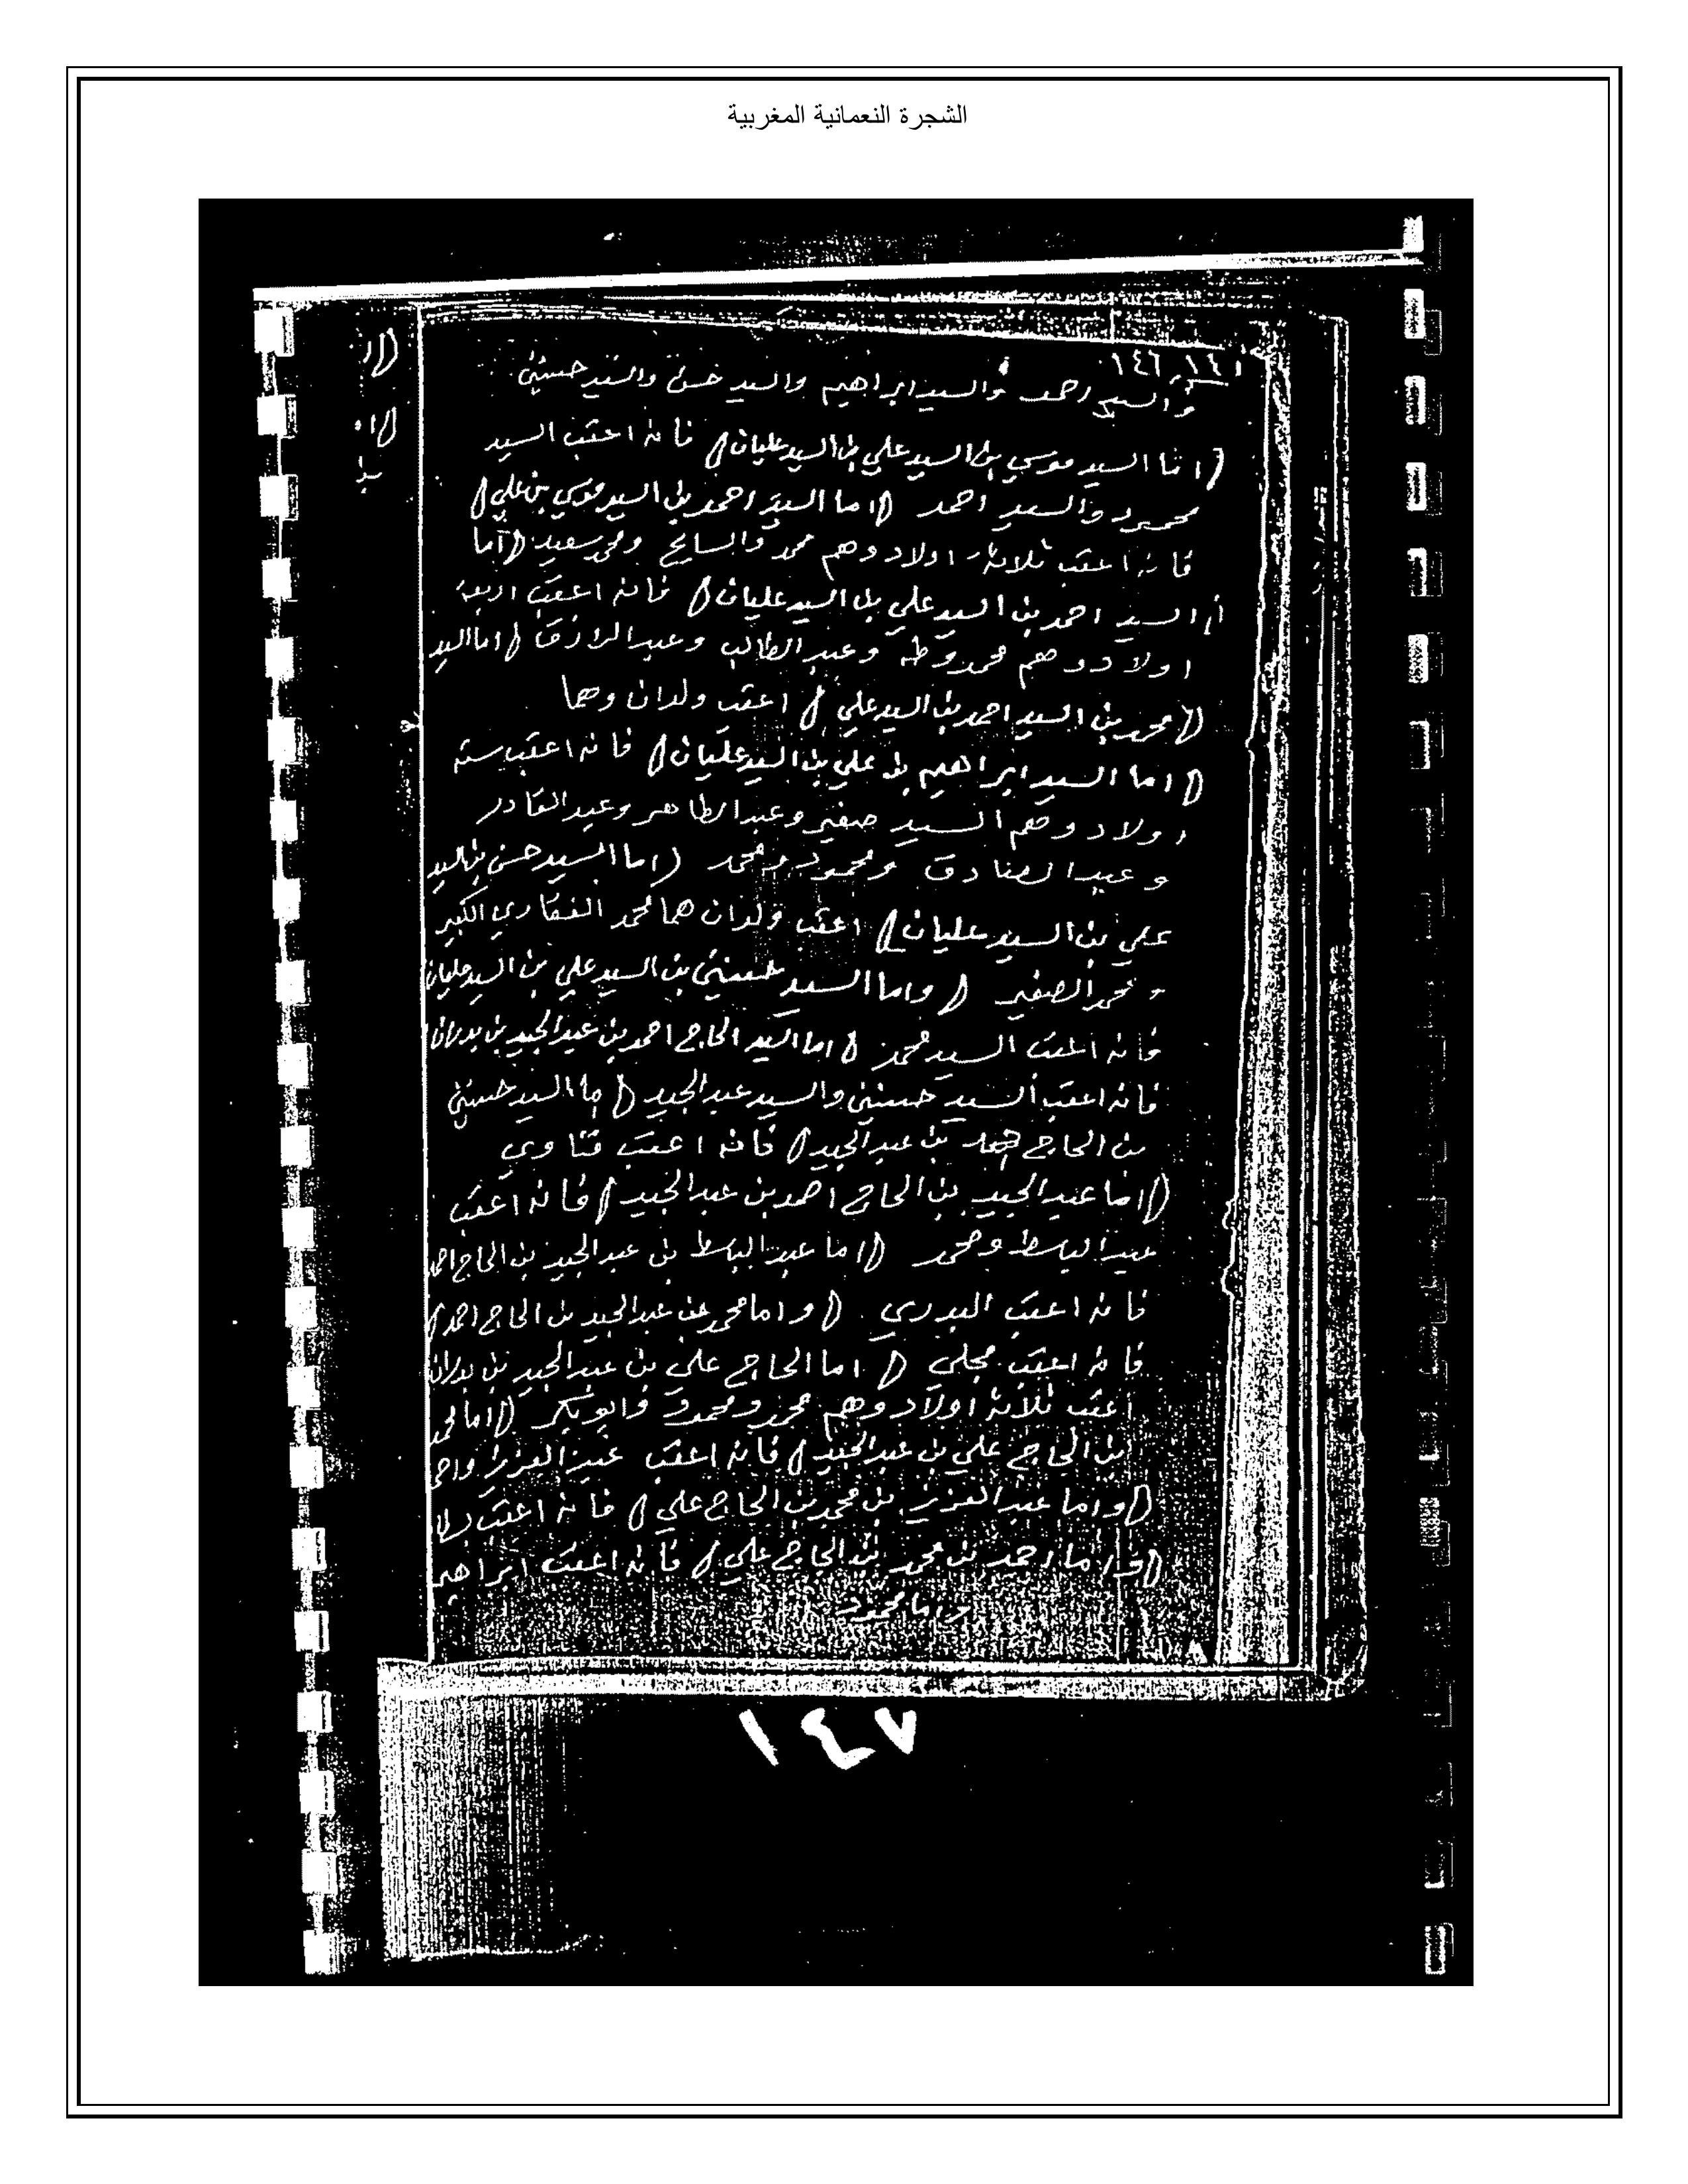 الشجرة النعمانية المغربية
١٤٦
والسيد احمد والسيد ابراهيم والسيد حسن والسيد حسيني
(اما السيد موسي بن السيد علي بن السيد عليان) فانه اعقب السيد
والسيد احمد (اما السيد احمد بن السيد موسي بن علي)
فانه اعقب ثلاثة اولاد وهم محمد والسايح ومحمد سعيد (اما
السيد احمد بن السيد علي بن السيد عليان) فانه اعقب اربعة
اولاد وهم محمد وطه وعبد الطالب وعبد الرازق (اما السيد
(محمد بن السيد احمد بن السيد علي) اعقب ولدان وهما
(اما السيد ابراهيم بن علي بن السيد عليان) فانه اعقب ستة
اولاد وهم السيد صغير وعبد الطاهر وعبد القادر
وعبد الصادق ومحمود ومحمد (اما السيد حسن بن السيد
علي بن السيد عليان) اعقب ولدان هما محمد الكبير
ومحمد الصغير (واما السيد حسيني بن السيد علي بن السيد عليان
فانه اعقب السيد محمد (اما السيد الحاج احمد بن عبد الجيد بن بدران
فانه اعقب السيد حسيني والسيد عبد الجيد (اما السيد حسيني
بن الحاج احمد بن عبد الجيد) فانه اعقب قناوي
(اما عبد الجيد بن الحاج احمد بن عبد الجيد) فانه اعقب
عبد الباسط ومحمد (اما عبد الباسط بن عبد الجيد بن الحاج احمد
فانه اعقب البدري (واما محمد بن عبد الجيد بن الحاج احمد)
فانه اعقب مجلي (اما الحاج علي بن عبد الجيد بن بدران
اعقب ثلاثة اولاد وهم محمد ومحمود وابو بكر (اما محمد
بن الحاج علي بن عبد الجيد) فانه اعقب عبد العزيز واحمد
(واما عبد العزيز بن محمد بن الحاج علي) فانه اعقب
(واما احمد بن محمد بن الحاج علي) فانه اعقب ابراهيم
واما محمود
١٤٧